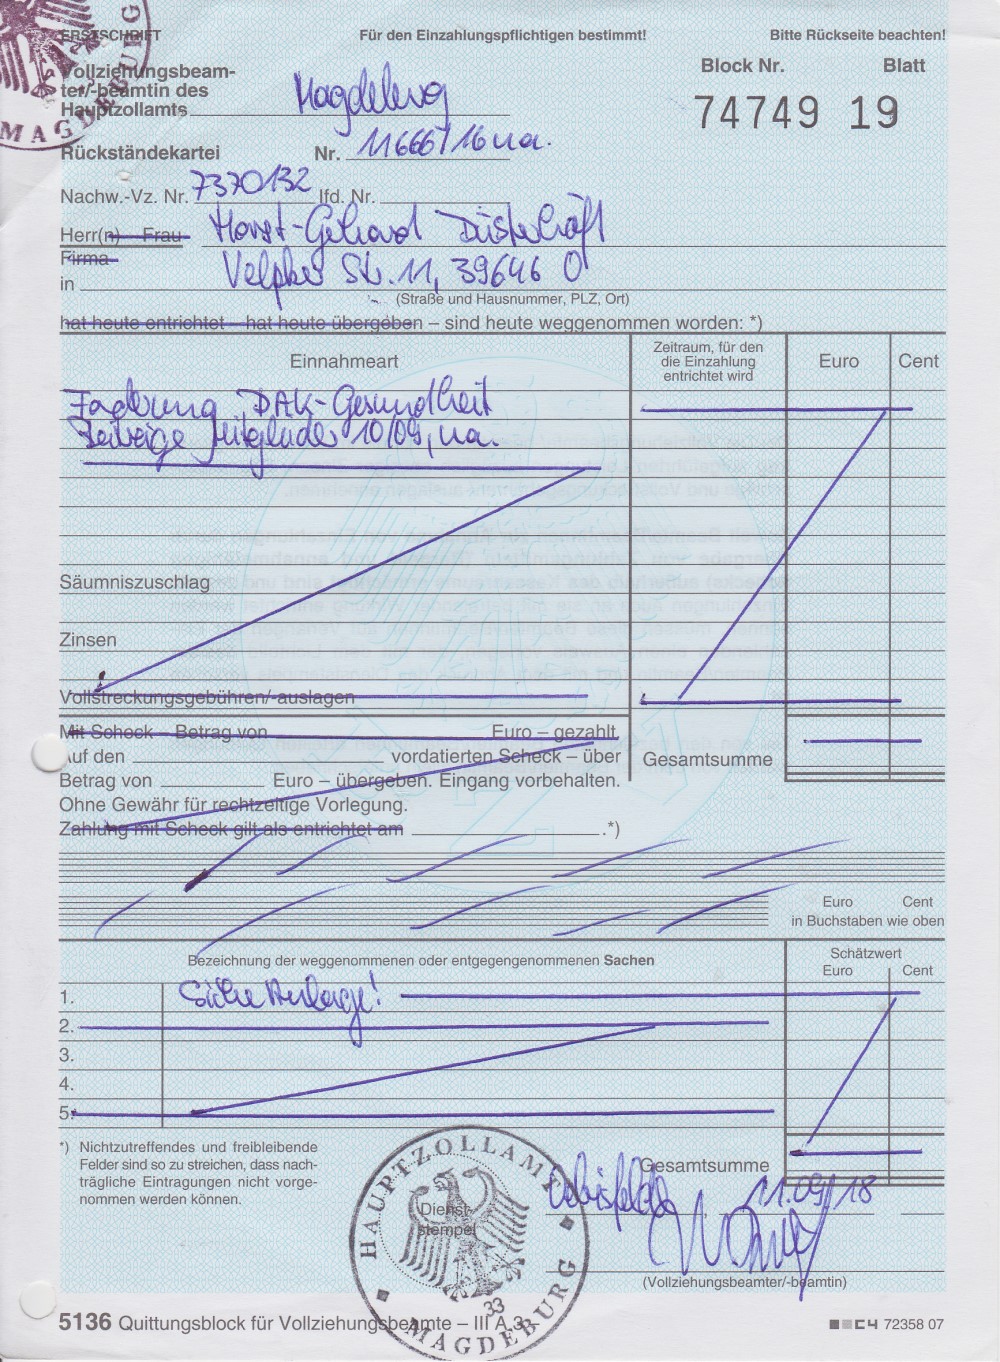 ERSTSCHRIFT Für den Einzahlungspflichtigen bestimmt! Bitte Rückseite beachten!
Vollziehungsbeam-
ter/-beamtin des
Hauptzollamts Magdeburg
Block Nr. Blatt
74749 19
Rückständekartei Nr. 11666/16 u.a.
Nachw.-Vz. Nr. 7370132 lfd. Nr.
Herr(n) Frau Horst-Gerhard Düsterhöft
Firma
in Velpker Str. 11, 39646 O
(Straße und Hausnummer, PLZ, Ort)
hat heute entrichtet – hat heute übergeben – sind heute weggenommen worden: *)
Einnahmeart Zeitraum, für den die Einzahlung entrichtet wird Euro Cent
Forderung DAK-Gesundheit
Beiträge Mitglieder 10/09, u.a.
Säumniszuschlag
Zinsen
Vollstreckungsgebühren/-auslagen
Mit Scheck – Betrag von Euro – gezahlt.
Auf den vordatierten Scheck – über
Gesamtsumme
Betrag von Euro – übergeben. Eingang vorbehalten.
Ohne Gewähr für rechtzeitige Vorlegung.
Zahlung mit Scheck gilt als entrichtet am .*)
Euro Cent
in Buchstaben wie oben
Bezeichnung der weggenommenen oder entgegengenommenen Sachen
Schätzwert
Euro Cent
1. Siehe Anlage!
2.
3.
4.
5.
*) Nichtzutreffendes und freibleibende
Felder sind so zu streichen, dass nach-
trägliche Eintragungen nicht vorge-
nommen werden können.
Gesamtsumme
HAUPTZOLLAMT
MAGDEBURG
33
Dienst-
stempel
Oebisfelde 11.09.18
(Vollziehungsbeamter/-beamtin)
5136 Quittungsblock für Vollziehungsbeamte – III A 3 72358 07
MAGDEBURG